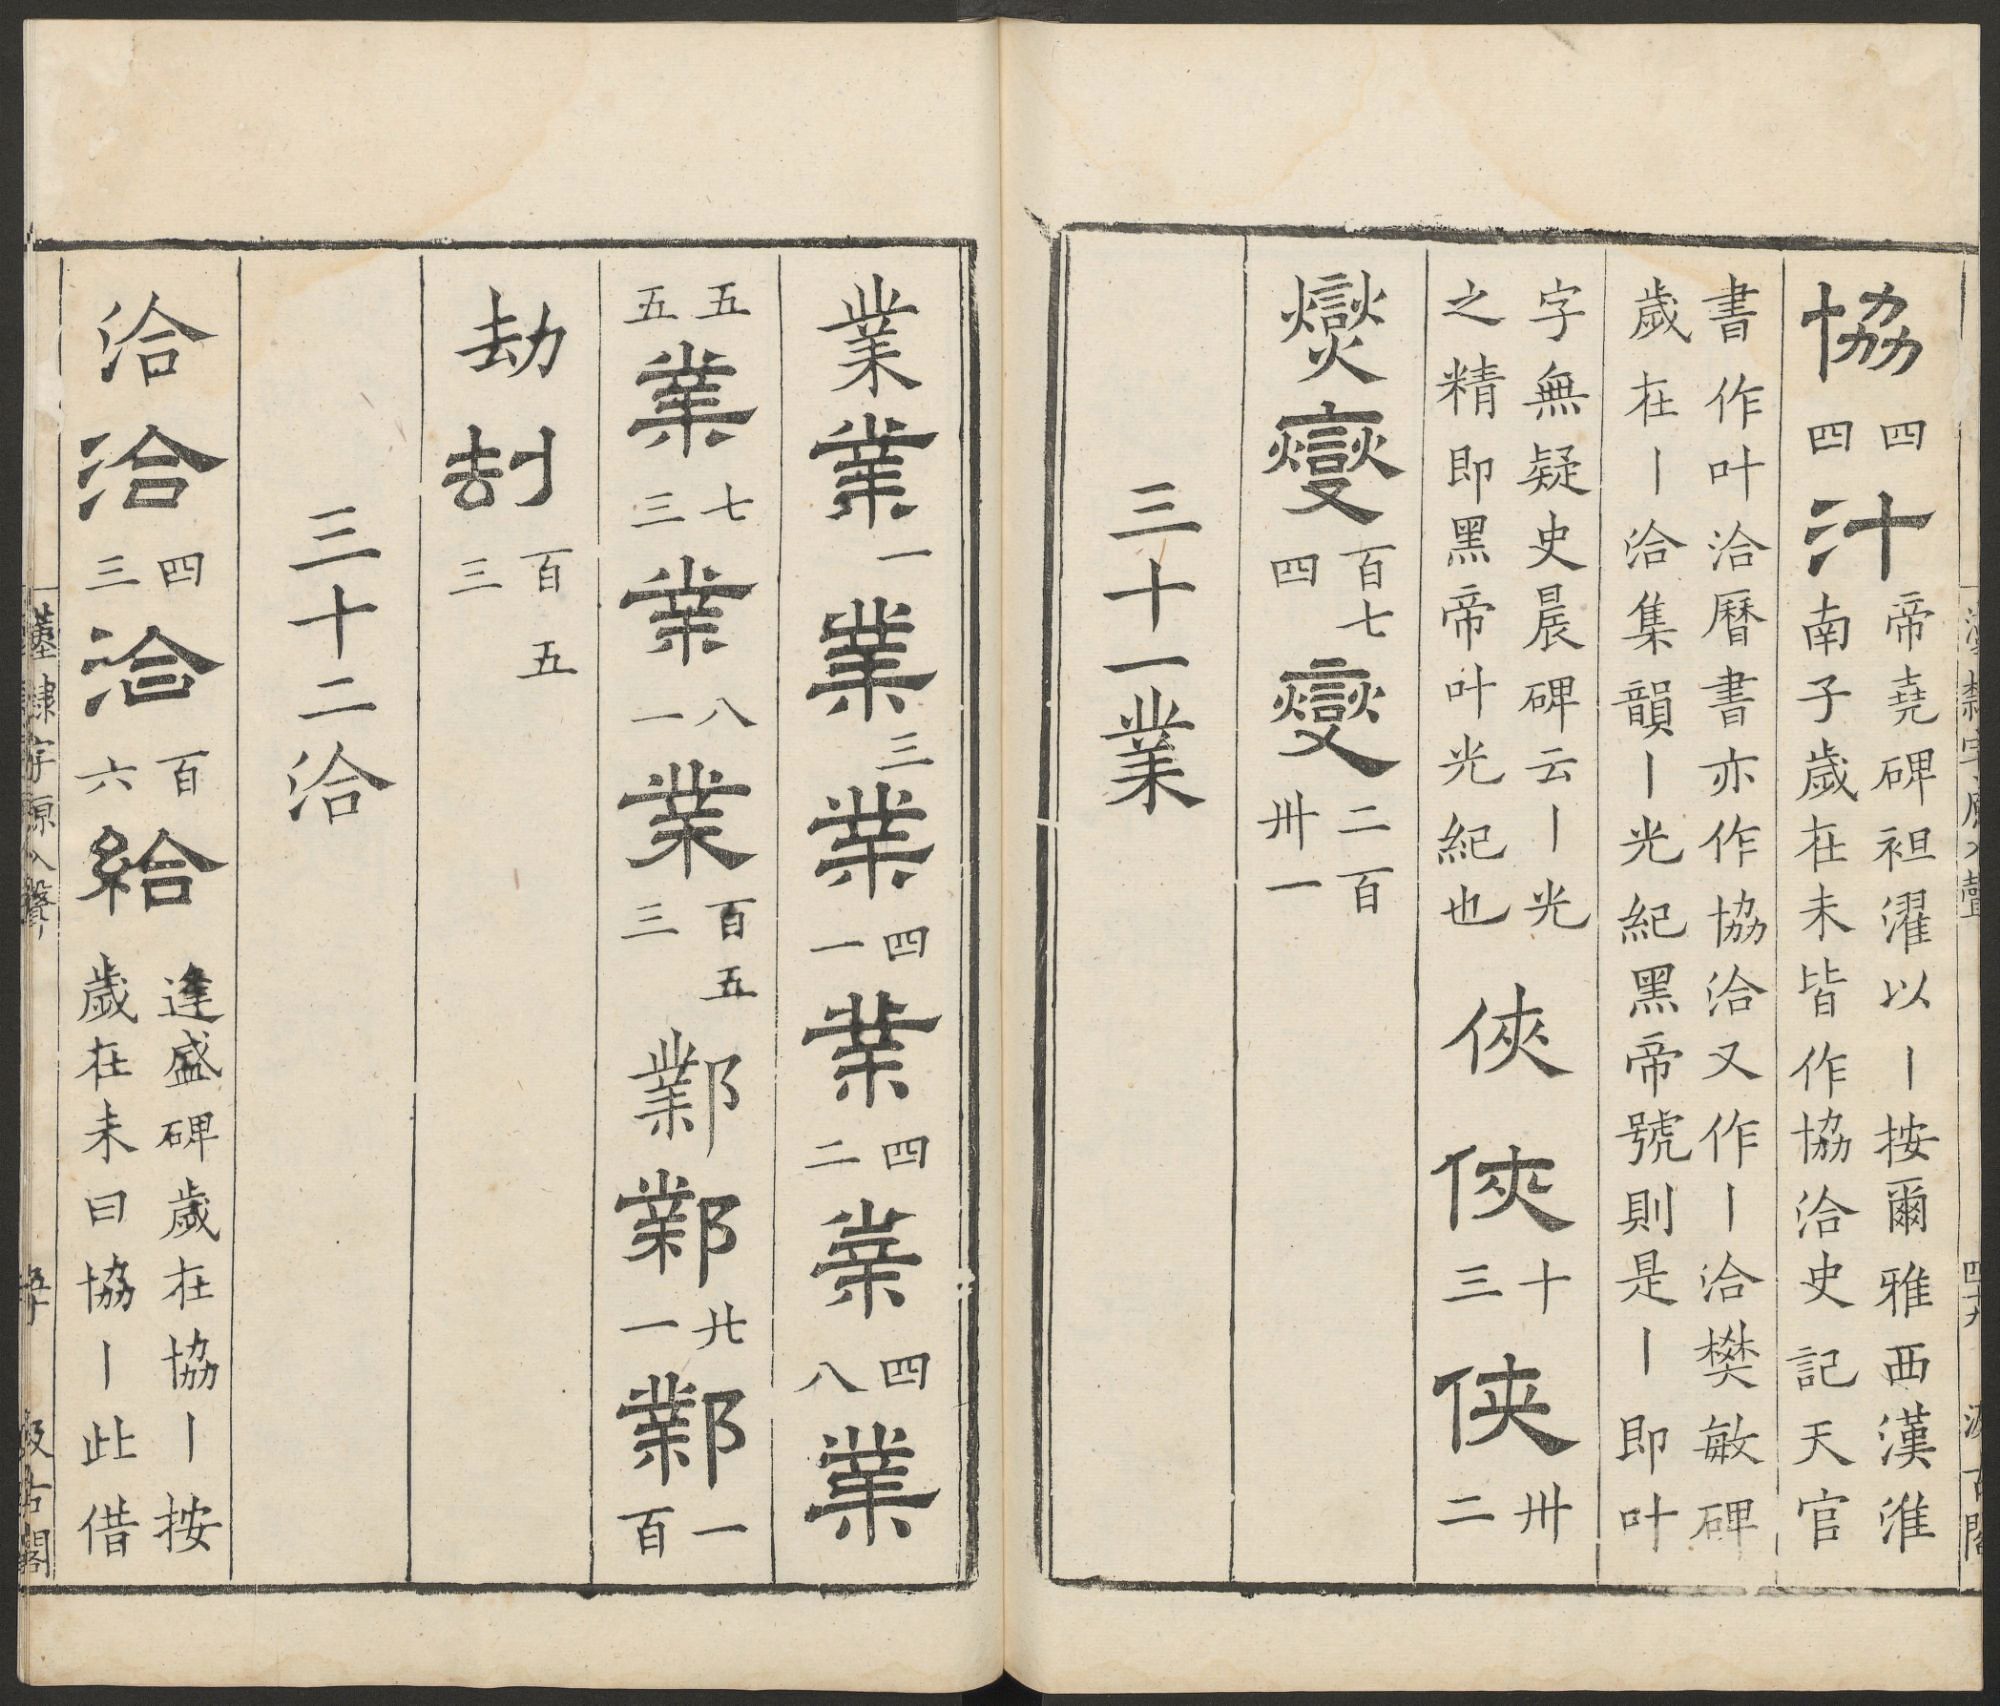 協四四汁帝堯碑袒濯以丨按爾雅西漢淮
南子歲在未皆作協洽史記天官
書作叶洽曆書亦作協洽又作丨洽樊敏碑
歲在丨洽集韻丨光紀黑帝號則是丨即叶
字無疑史晨碑云丨光
之精即黑帝叶光紀也
俠俠十三俠卅二
燮燮百七四燮二百卅一
三十一業
業業一業三業四一業四二業四八業
五五業七三業八一業百五三鄴鄴廿一鄴一百
劫刦百五三
三十二洽
洽洽四三洽百六給逢盛碑歲在協丨按
歲在未曰協丨此借
漢隸字源入聲
五十
汲古閣
漢隸字源入聲
四十九
汲古閣